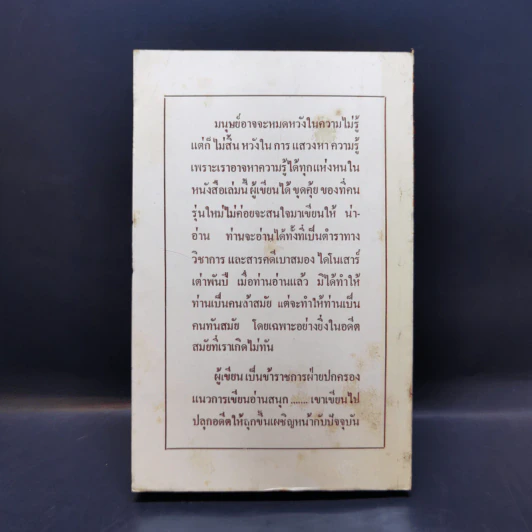 มนุษย์อาจจะหมดหวังในความไม่รู้
แต่ก็ไม่สิ้นหวังใน การ แสวงหา ความรู้
เพราะเราอาจหาความรู้ได้ทุกแห่งหนใน
หนังสือเล่มนี้ ผู้เขียนได้ ขุดคุ้ย ของที่คน
รุ่นใหม่ไม่ค่อยจะสนใจมาเขียนให้ น่า-
อ่าน ท่านจะอ่านได้ทั้งที่เป็นตำราทาง
วิชาการ และสารคดีเบาสมอง ไดโนเสาร์
เต่าพันปี เมื่อท่านอ่านแล้ว มิได้ทำให้
ท่านเป็นคนล้าสมัย แต่จะทำให้ท่านเป็น
คนทันสมัย โดยเฉพาะอย่างยิ่งในอดีต
สมัยที่เราเกิดไม่ทัน
ผู้เขียน เป็นข้าราชการฝ่ายปกครอง
แนวการเขียนอ่านสนุก ....... เขาเขียนไป
ปลุกอดีตให้ลุกขึ้นเผชิญหน้ากับปัจจุบัน